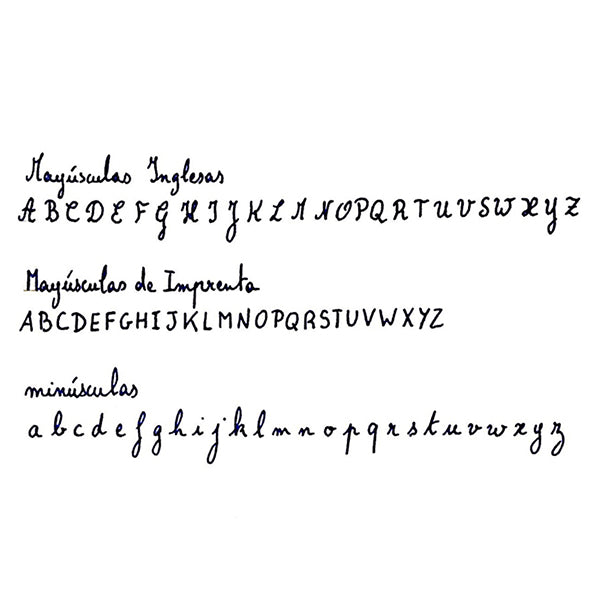 Mayúsculas Inglesas
A B C D E F G H I J K L M N O P Q R T U V S W X Y Z
Mayúsculas de Imprenta
A B C D E F G H I J K L M N O P Q R S T U V W X Y Z
minúsculas
a b c d e f g h i j k l m n o p q r s t u v w x y z